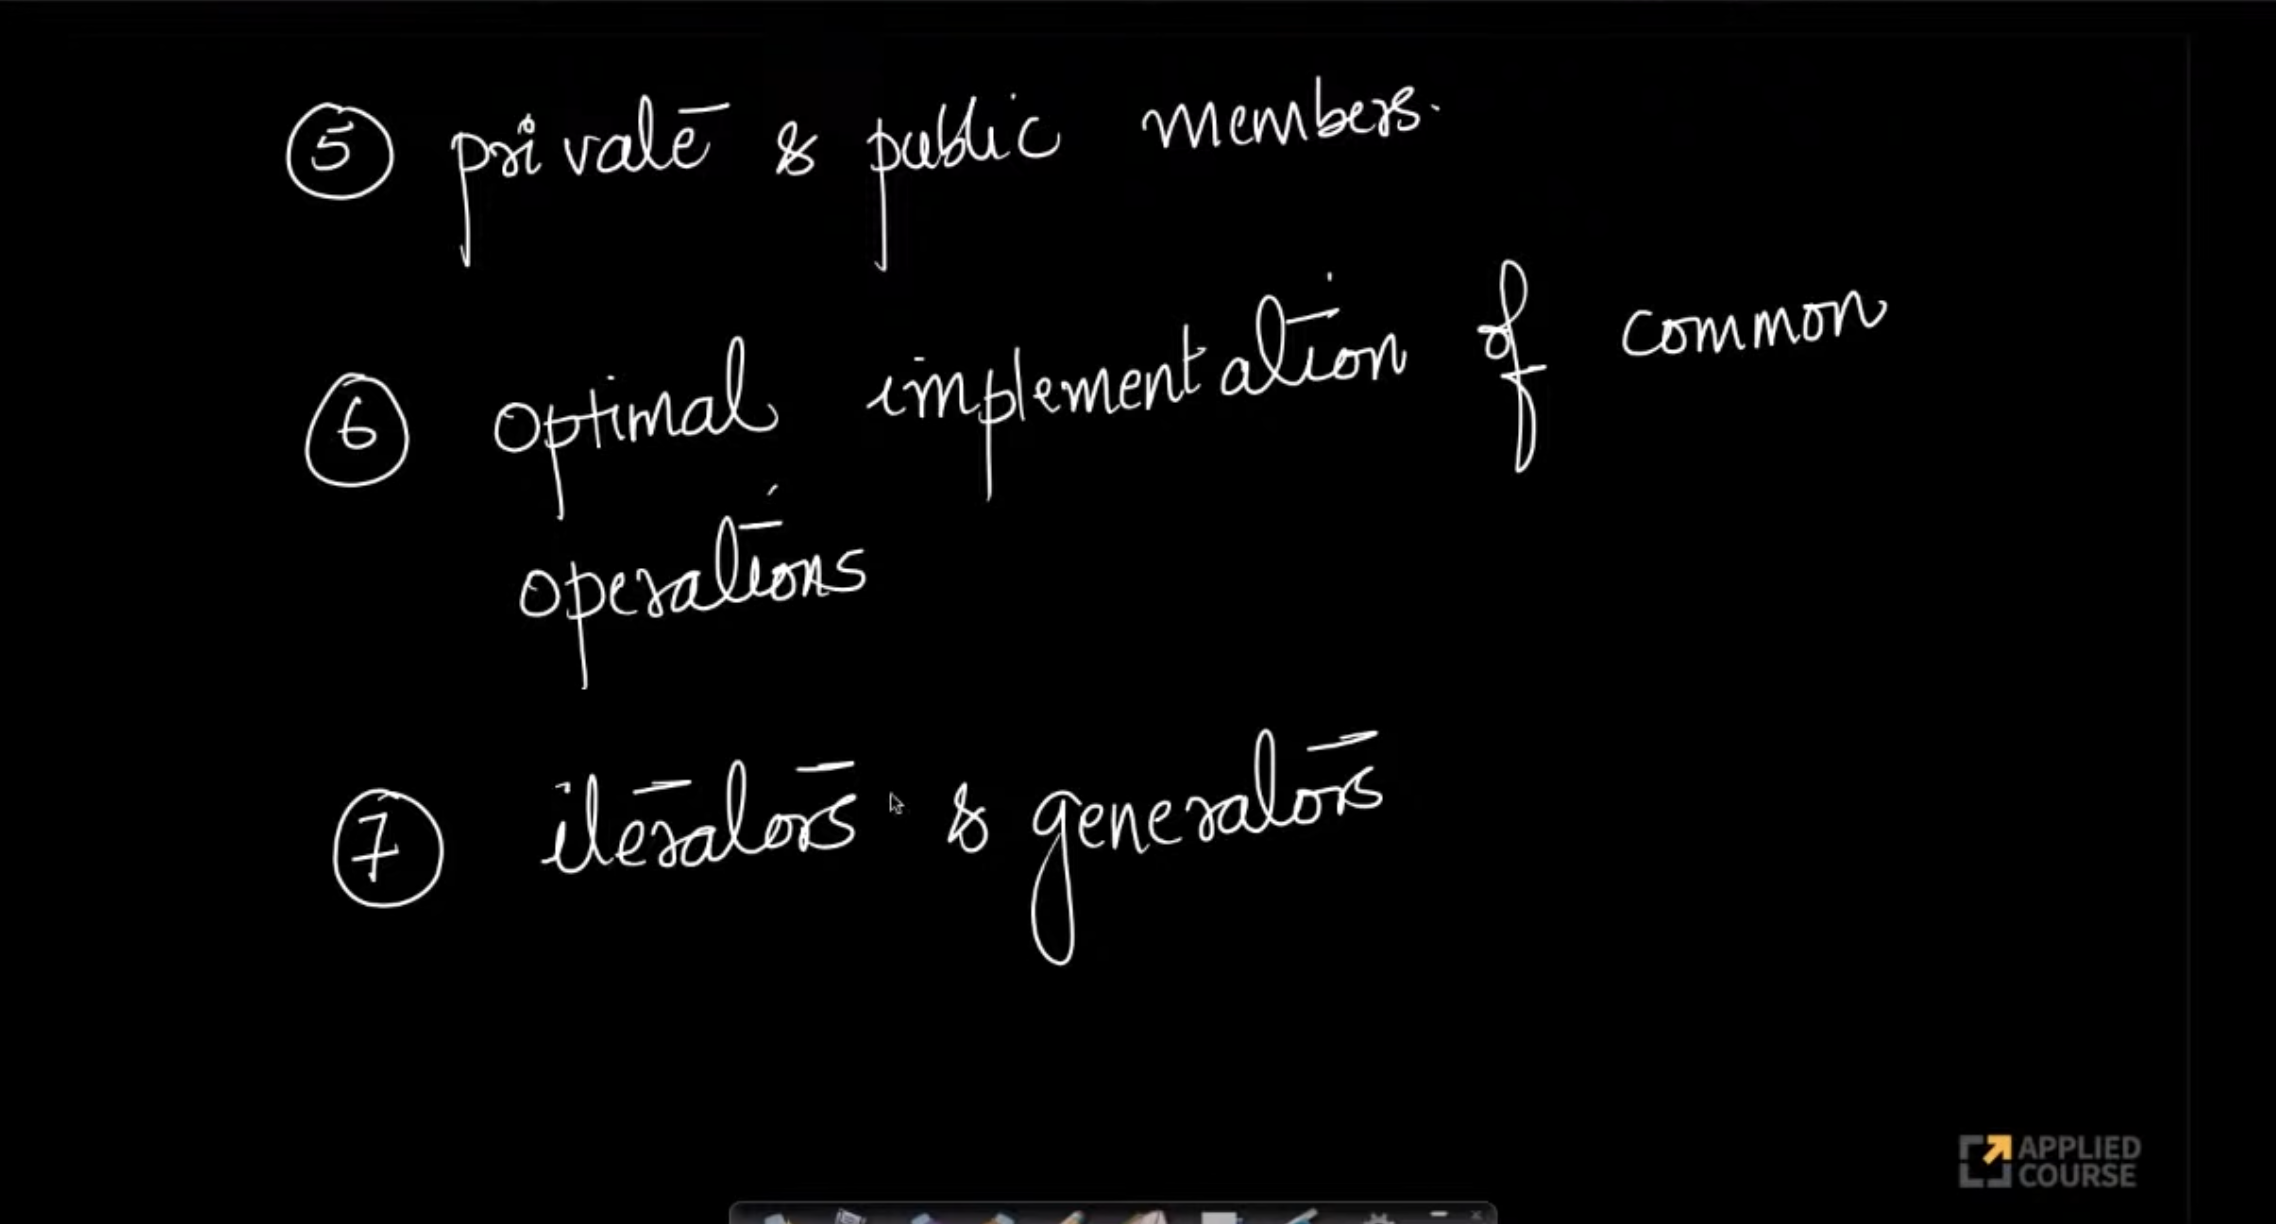 5 private & public members.
6 optimal implementation of common
operations
7 iterators & generators
APPLIED
COURSE